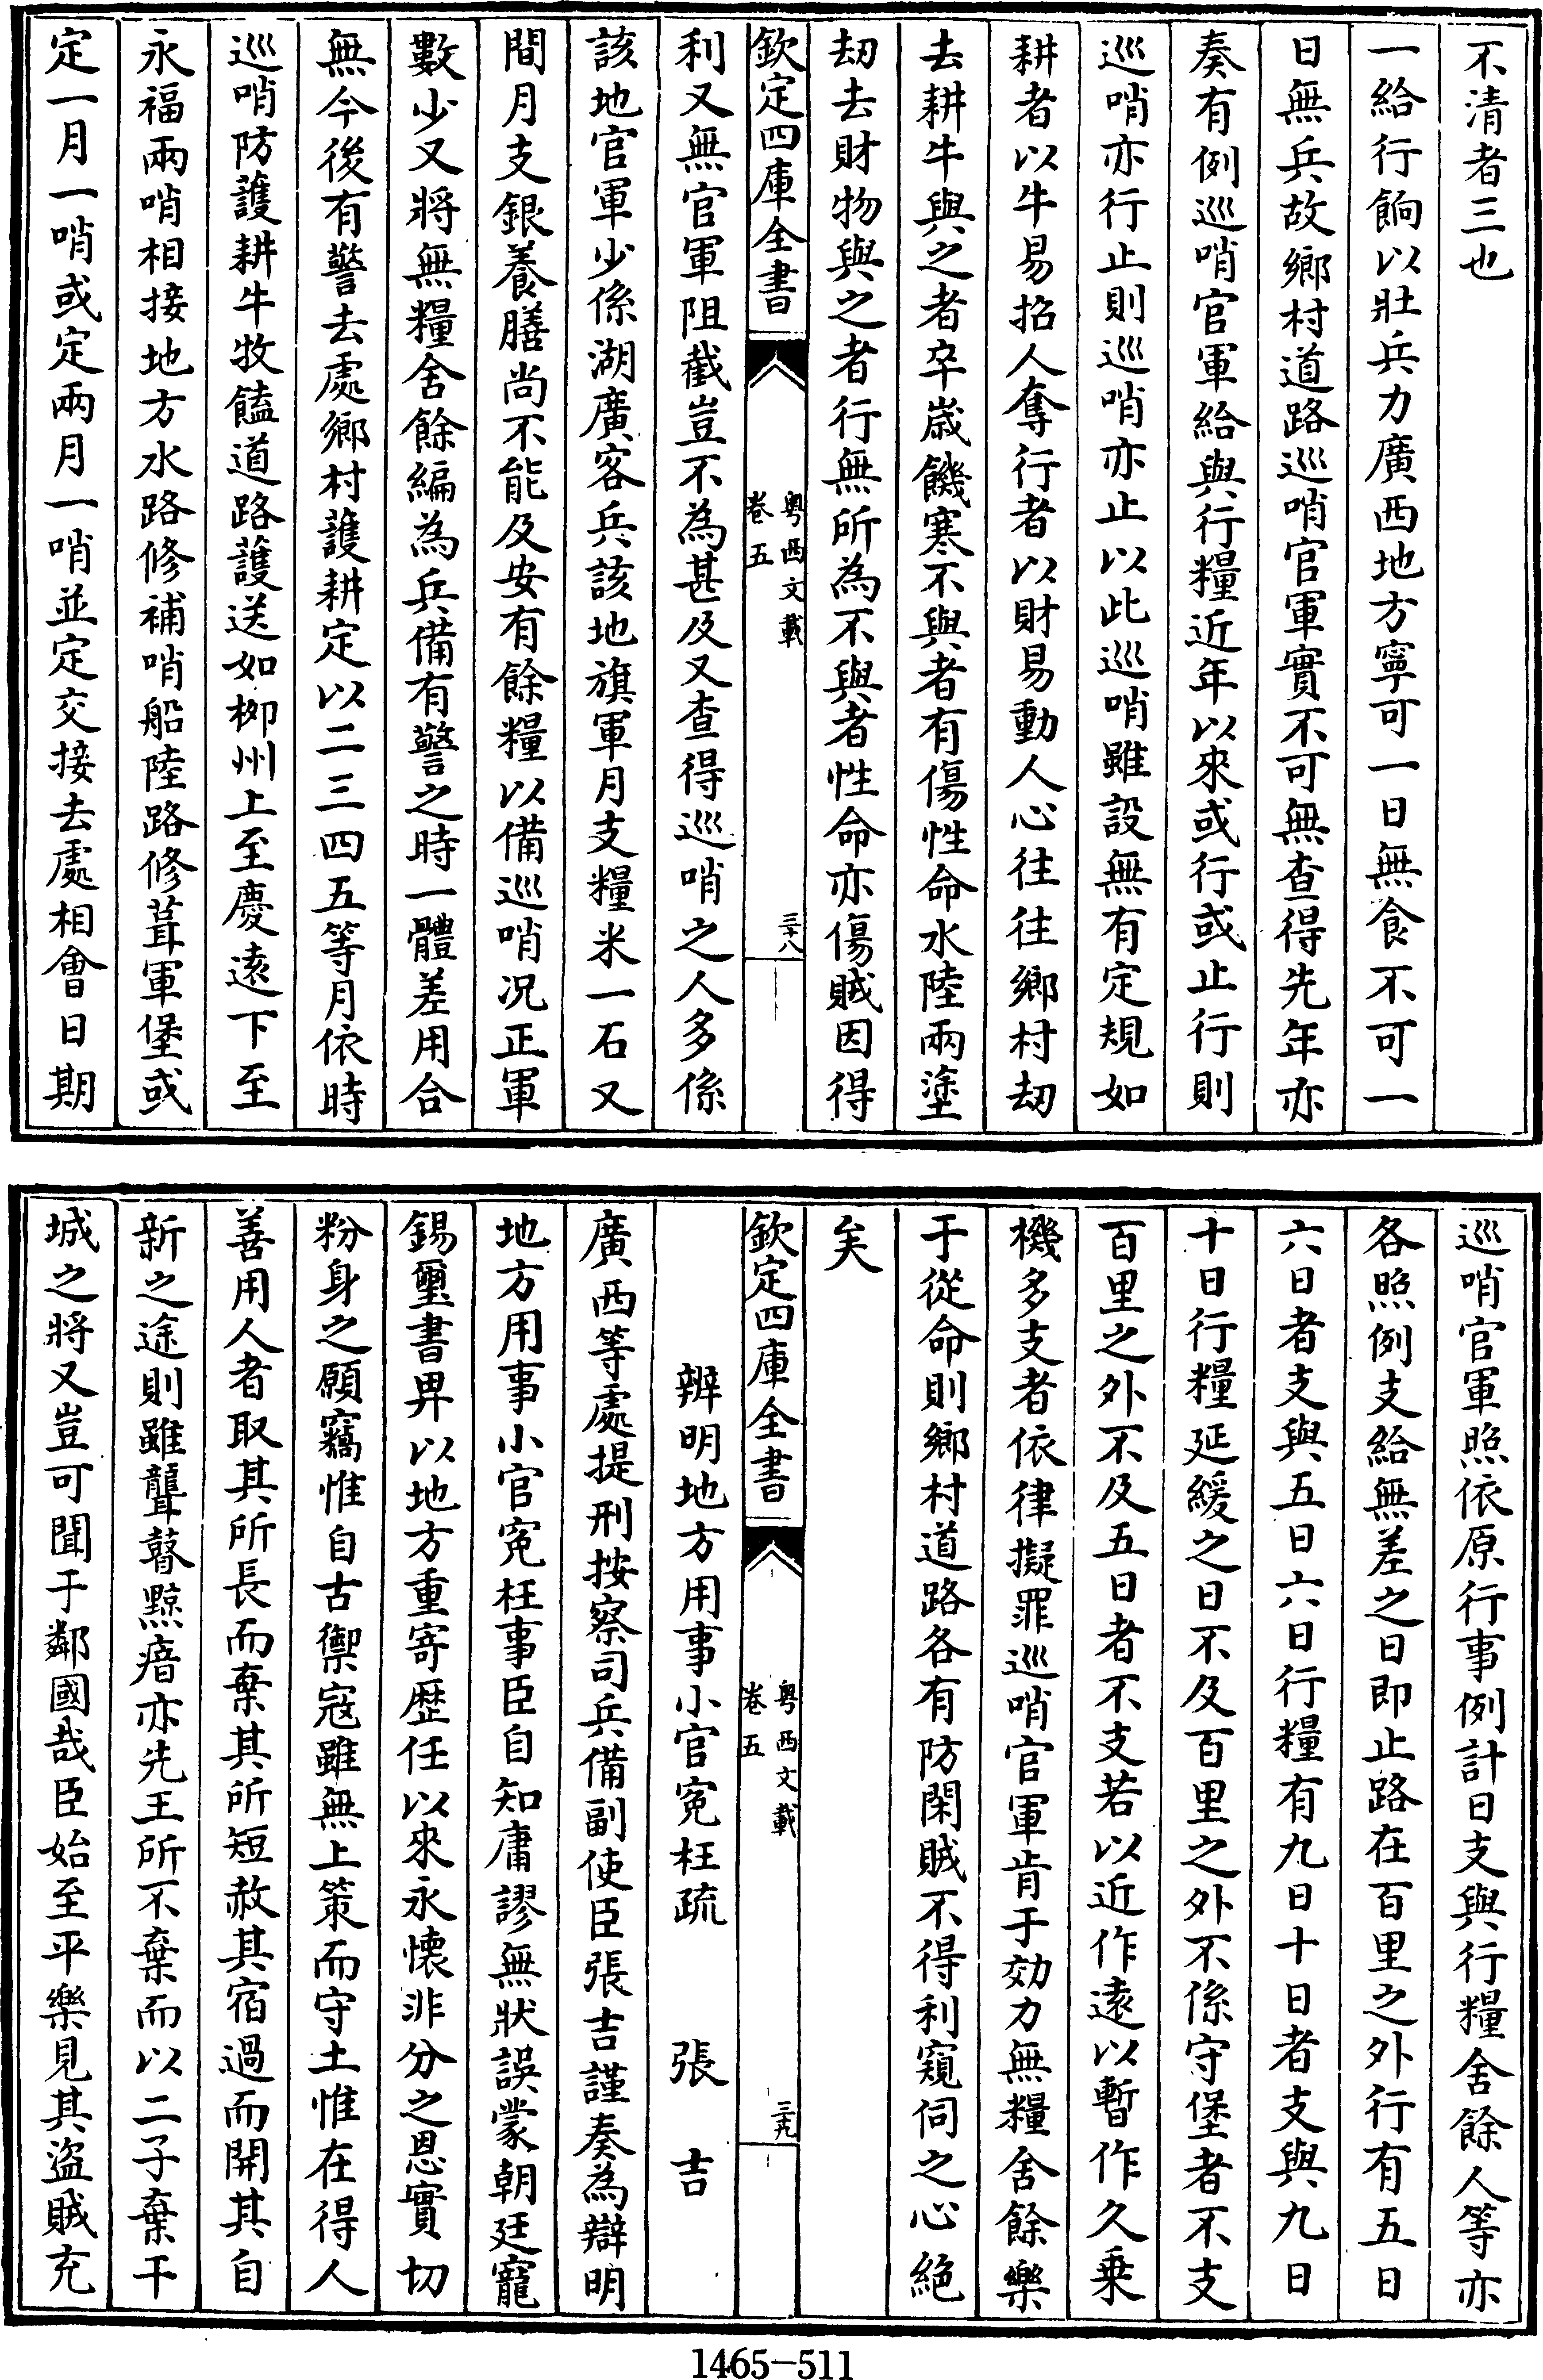 不清者三也
一給行餉以壯兵力廣西地方寧可一日無食不可一
日無兵故鄉村道路巡哨官軍實不可無查得先年亦
奏有例巡哨官軍給與行糧近年以來或行或止行則
巡哨亦行止則巡哨亦止以此巡哨雖設無有定規如
耕者以牛易招人奪行者以財易動人心往往鄉村刼
去耕牛與之者卒歲饑寒不與者有傷性命水陸兩塗
刼去財物與之者行無所為不與者性命亦傷賊因得
欽定四庫全書
粵西文載
卷五
三十八
利又無官軍阻截豈不為甚及又查得巡哨之人多係
該地官軍少係湖廣客兵該地旗軍月支糧米一石又
間月支銀養膳尚不能及安有餘糧以備巡哨况正軍
數少又將無糧舍餘編為兵備有警之時一體差用合
無今後有警去處鄉村護耕定以二三四五等月依時
巡哨防護耕牛牧饁道路護送如柳州上至慶遠下至
永福兩哨相接地方水路修補哨船陸路修葺軍堡或
定一月一哨或定兩月一哨並定交接去處相會日期
巡哨官軍照依原行事例計日支與行糧舍餘人等亦
各照例支給無差之日即止路在百里之外行有五日
六日者支與五日六日行糧有九日十日者支與九日
十日行糧延緩之日不及百里之外不係守堡者不支
百里之外不及五日者不支若以近作遠以暫作久乗
機多支者依律擬罪巡哨官軍肯于効力無糧舍餘樂
于從命則鄉村道路各有防閑賊不得利窺伺之心絕
矣
欽定四庫全書
粵西文載
卷五
三十九
辨明地方用事小官寃枉疏 張吉
廣西等處提刑按察司兵備副使臣張吉謹奏為辯明
地方用事小官寃枉事臣自知庸謬無狀誤蒙朝廷寵
錫璽書畀以地方重寄歷任以來永懷非分之恩實切
粉身之願竊惟自古禦寇雖無上策而守土惟在得人
善用人者取其所長而棄其所短赦其宿過而開其自
新之途則雖聾瞽黥瘖亦先王所不棄而以二子棄干
城之將又豈可聞于鄰國哉臣始至平樂見其盜賊充
1465-511